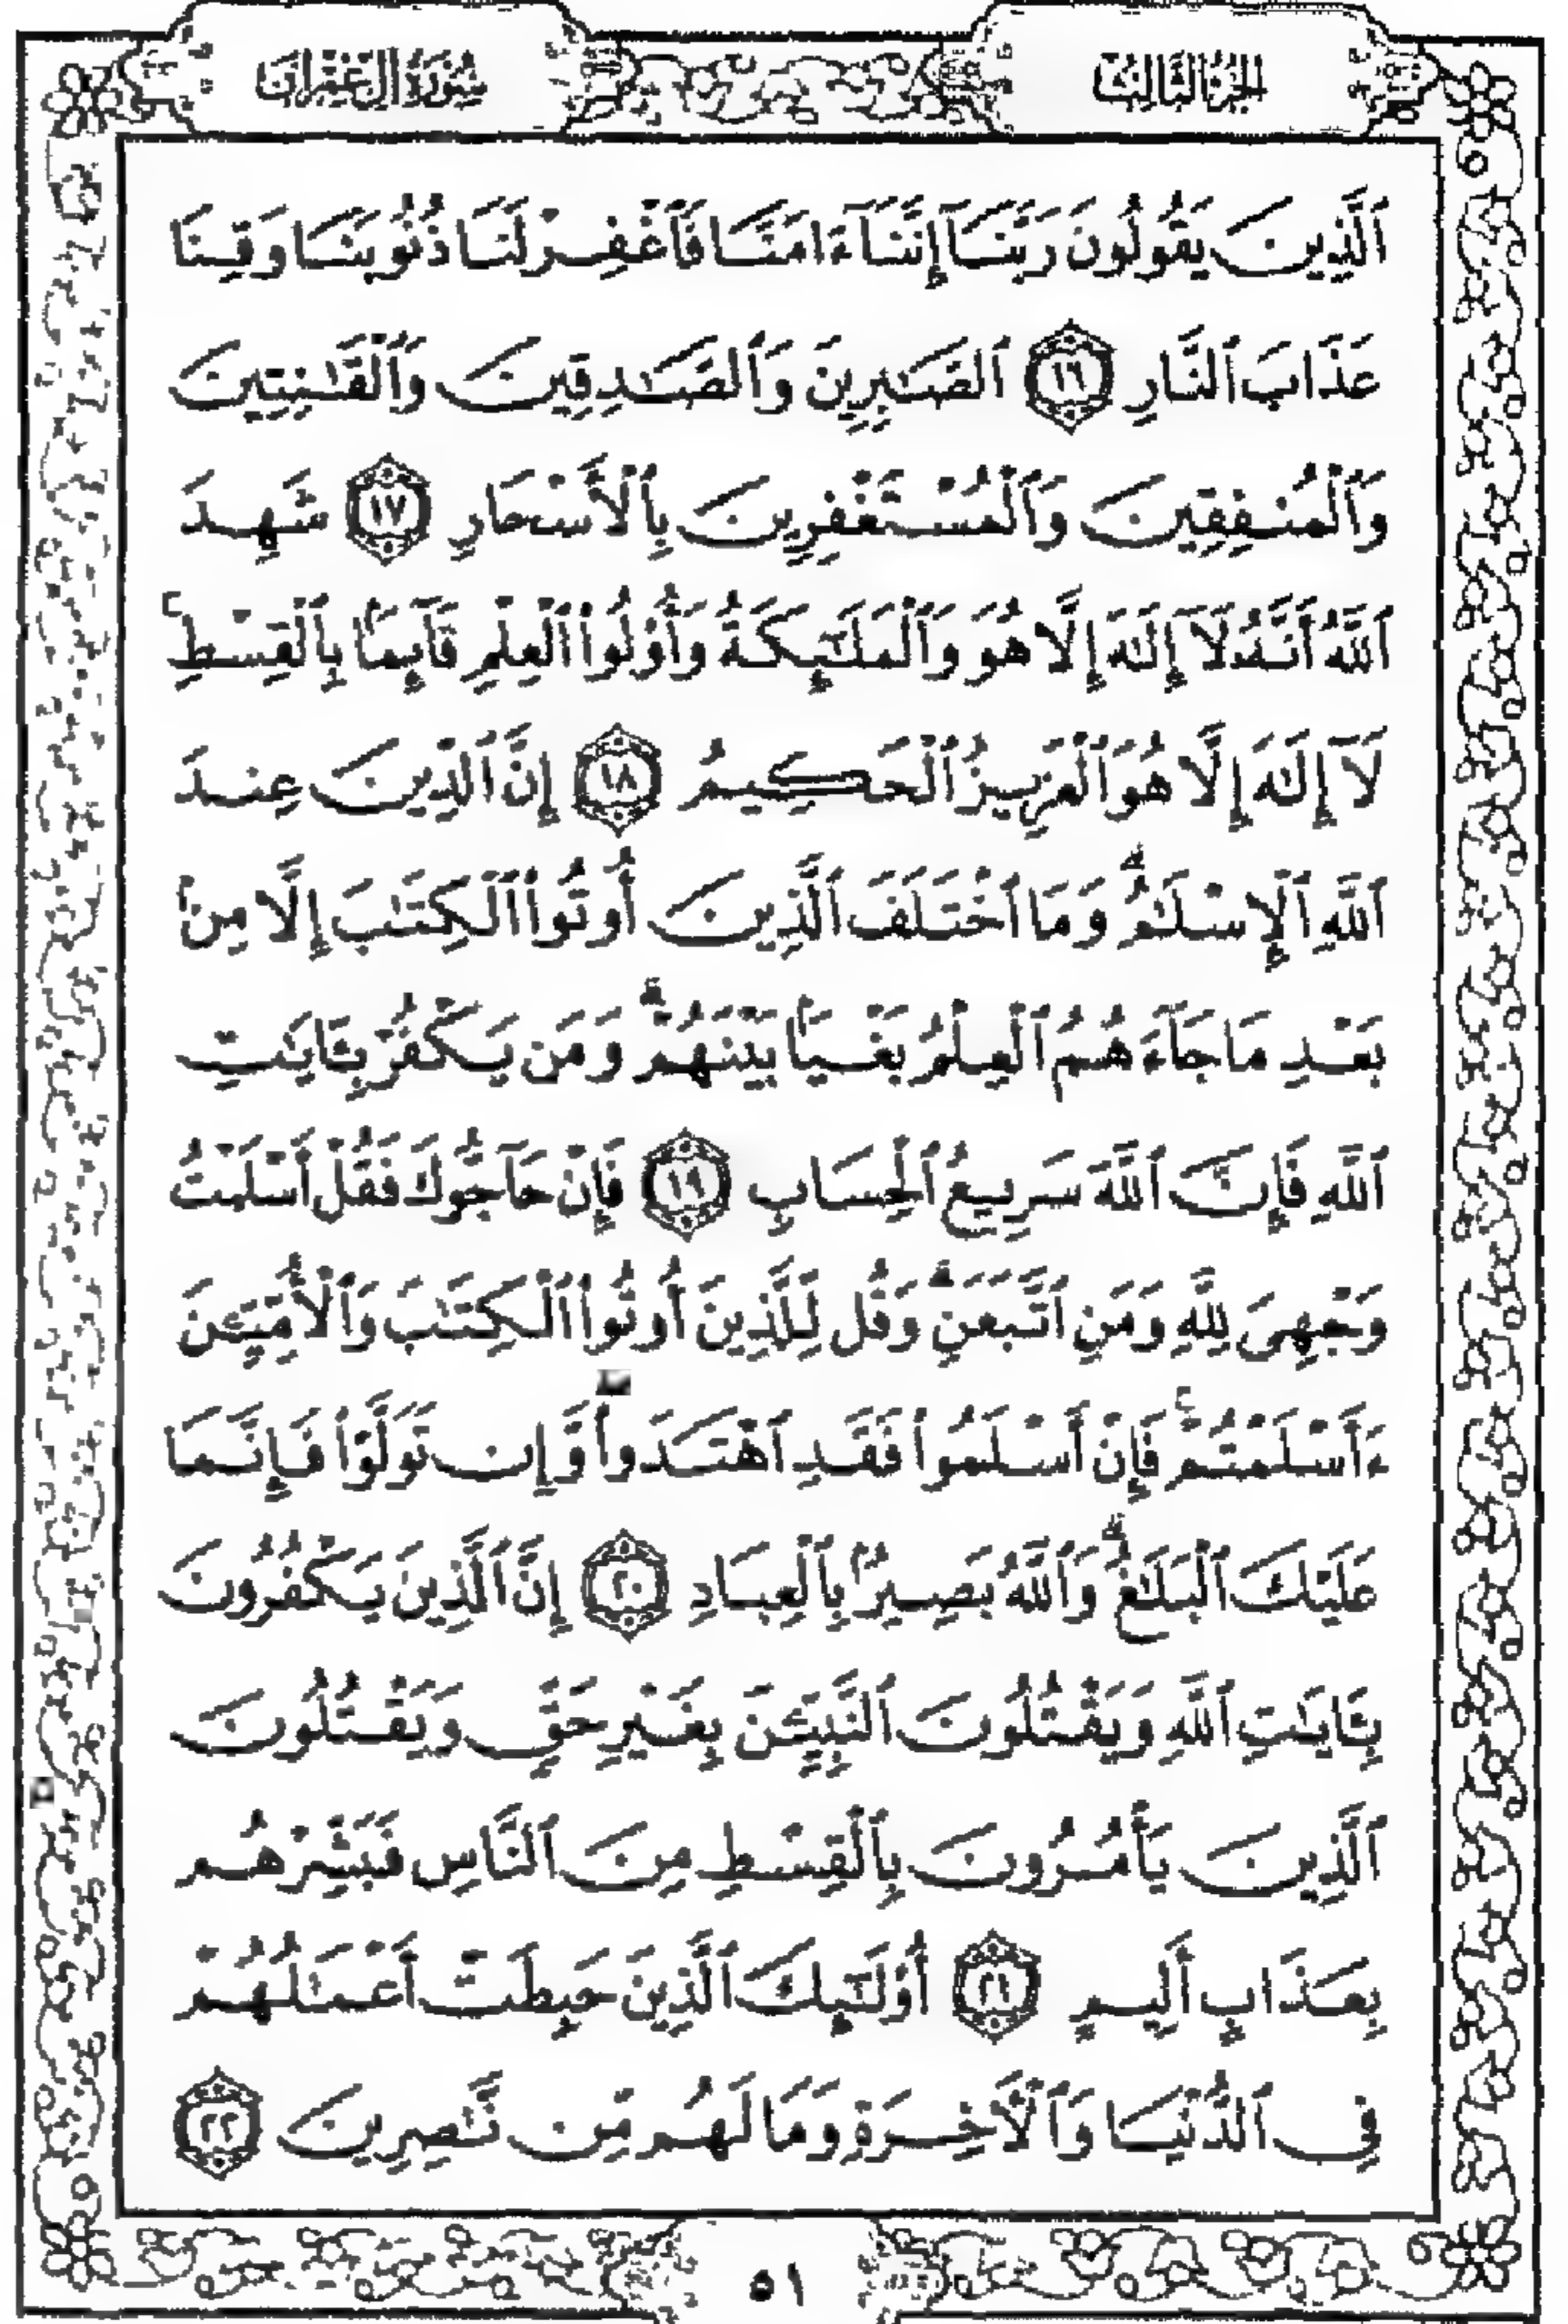 الجُزْءُ الثَّالِثُ
سُورَةُ آلِ عِمْرَانَ
ٱلَّذِينَ يَقُولُونَ رَبَّنَآ إِنَّنَآ ءَامَنَّا فَٱغْفِرْ لَنَا ذُنُوبَنَا وَقِنَا
عَذَابَ ٱلنَّارِ ١٦ ٱلصَّـٰبِرِينَ وَٱلصَّـٰدِقِينَ وَٱلْقَـٰنِتِينَ
وَٱلْمُنفِقِينَ وَٱلْمُسْتَغْفِرِينَ بِٱلْأَسْحَارِ ١٧ شَهِدَ
ٱللَّهُ أَنَّهُۥ لَآ إِلَـٰهَ إِلَّا هُوَ وَٱلْمَلَـٰٓئِكَةُ وَأُو۟لُوا۟ ٱلْعِلْمِ قَآئِمًۢا بِٱلْقِسْطِ ۚ
لَآ إِلَـٰهَ إِلَّا هُوَ ٱلْعَزِيزُ ٱلْحَكِيمُ ١٨ إِنَّ ٱلدِّينَ عِندَ
ٱللَّهِ ٱلْإِسْلَـٰمُ ۗ وَمَا ٱخْتَلَفَ ٱلَّذِينَ أُوتُوا۟ ٱلْكِتَـٰبَ إِلَّا مِنۢ
بَعْدِ مَا جَآءَهُمُ ٱلْعِلْمُ بَغْيًۢا بَيْنَهُمْ ۗ وَمَن يَكْفُرْ بِـَٔايَـٰتِ
ٱللَّهِ فَإِنَّ ٱللَّهَ سَرِيعُ ٱلْحِسَابِ ١٩ فَإِنْ حَآجُّوكَ فَقُلْ أَسْلَمْتُ
وَجْهِىَ لِلَّهِ وَمَنِ ٱتَّبَعَنِ ۗ وَقُل لِّلَّذِينَ أُوتُوا۟ ٱلْكِتَـٰبَ وَٱلْأُمِّيِّـۧنَ
ءَأَسْلَمْتُمْ ۚ فَإِنْ أَسْلَمُوا۟ فَقَدِ ٱهْتَدَوا۟ ۖ وَّإِن تَوَلَّوْا۟ فَإِنَّمَا
عَلَيْكَ ٱلْبَلَـٰغُ ۗ وَٱللَّهُ بَصِيرٌۢ بِٱلْعِبَادِ ٢٠ إِنَّ ٱلَّذِينَ يَكْفُرُونَ
بِـَٔايَـٰتِ ٱللَّهِ وَيَقْتُلُونَ ٱلنَّبِيِّـۧنَ بِغَيْرِ حَقٍّ وَيَقْتُلُونَ
ٱلَّذِينَ يَأْمُرُونَ بِٱلْقِسْطِ مِنَ ٱلنَّاسِ فَبَشِّرْهُم
بِعَذَابٍ أَلِيمٍ ٢١ أُو۟لَـٰٓئِكَ ٱلَّذِينَ حَبِطَتْ أَعْمَـٰلُهُمْ
فِى ٱلدُّنْيَا وَٱلْـَٔاخِرَةِ وَمَا لَهُم مِّن نَّـٰصِرِينَ ٢٢
٥١